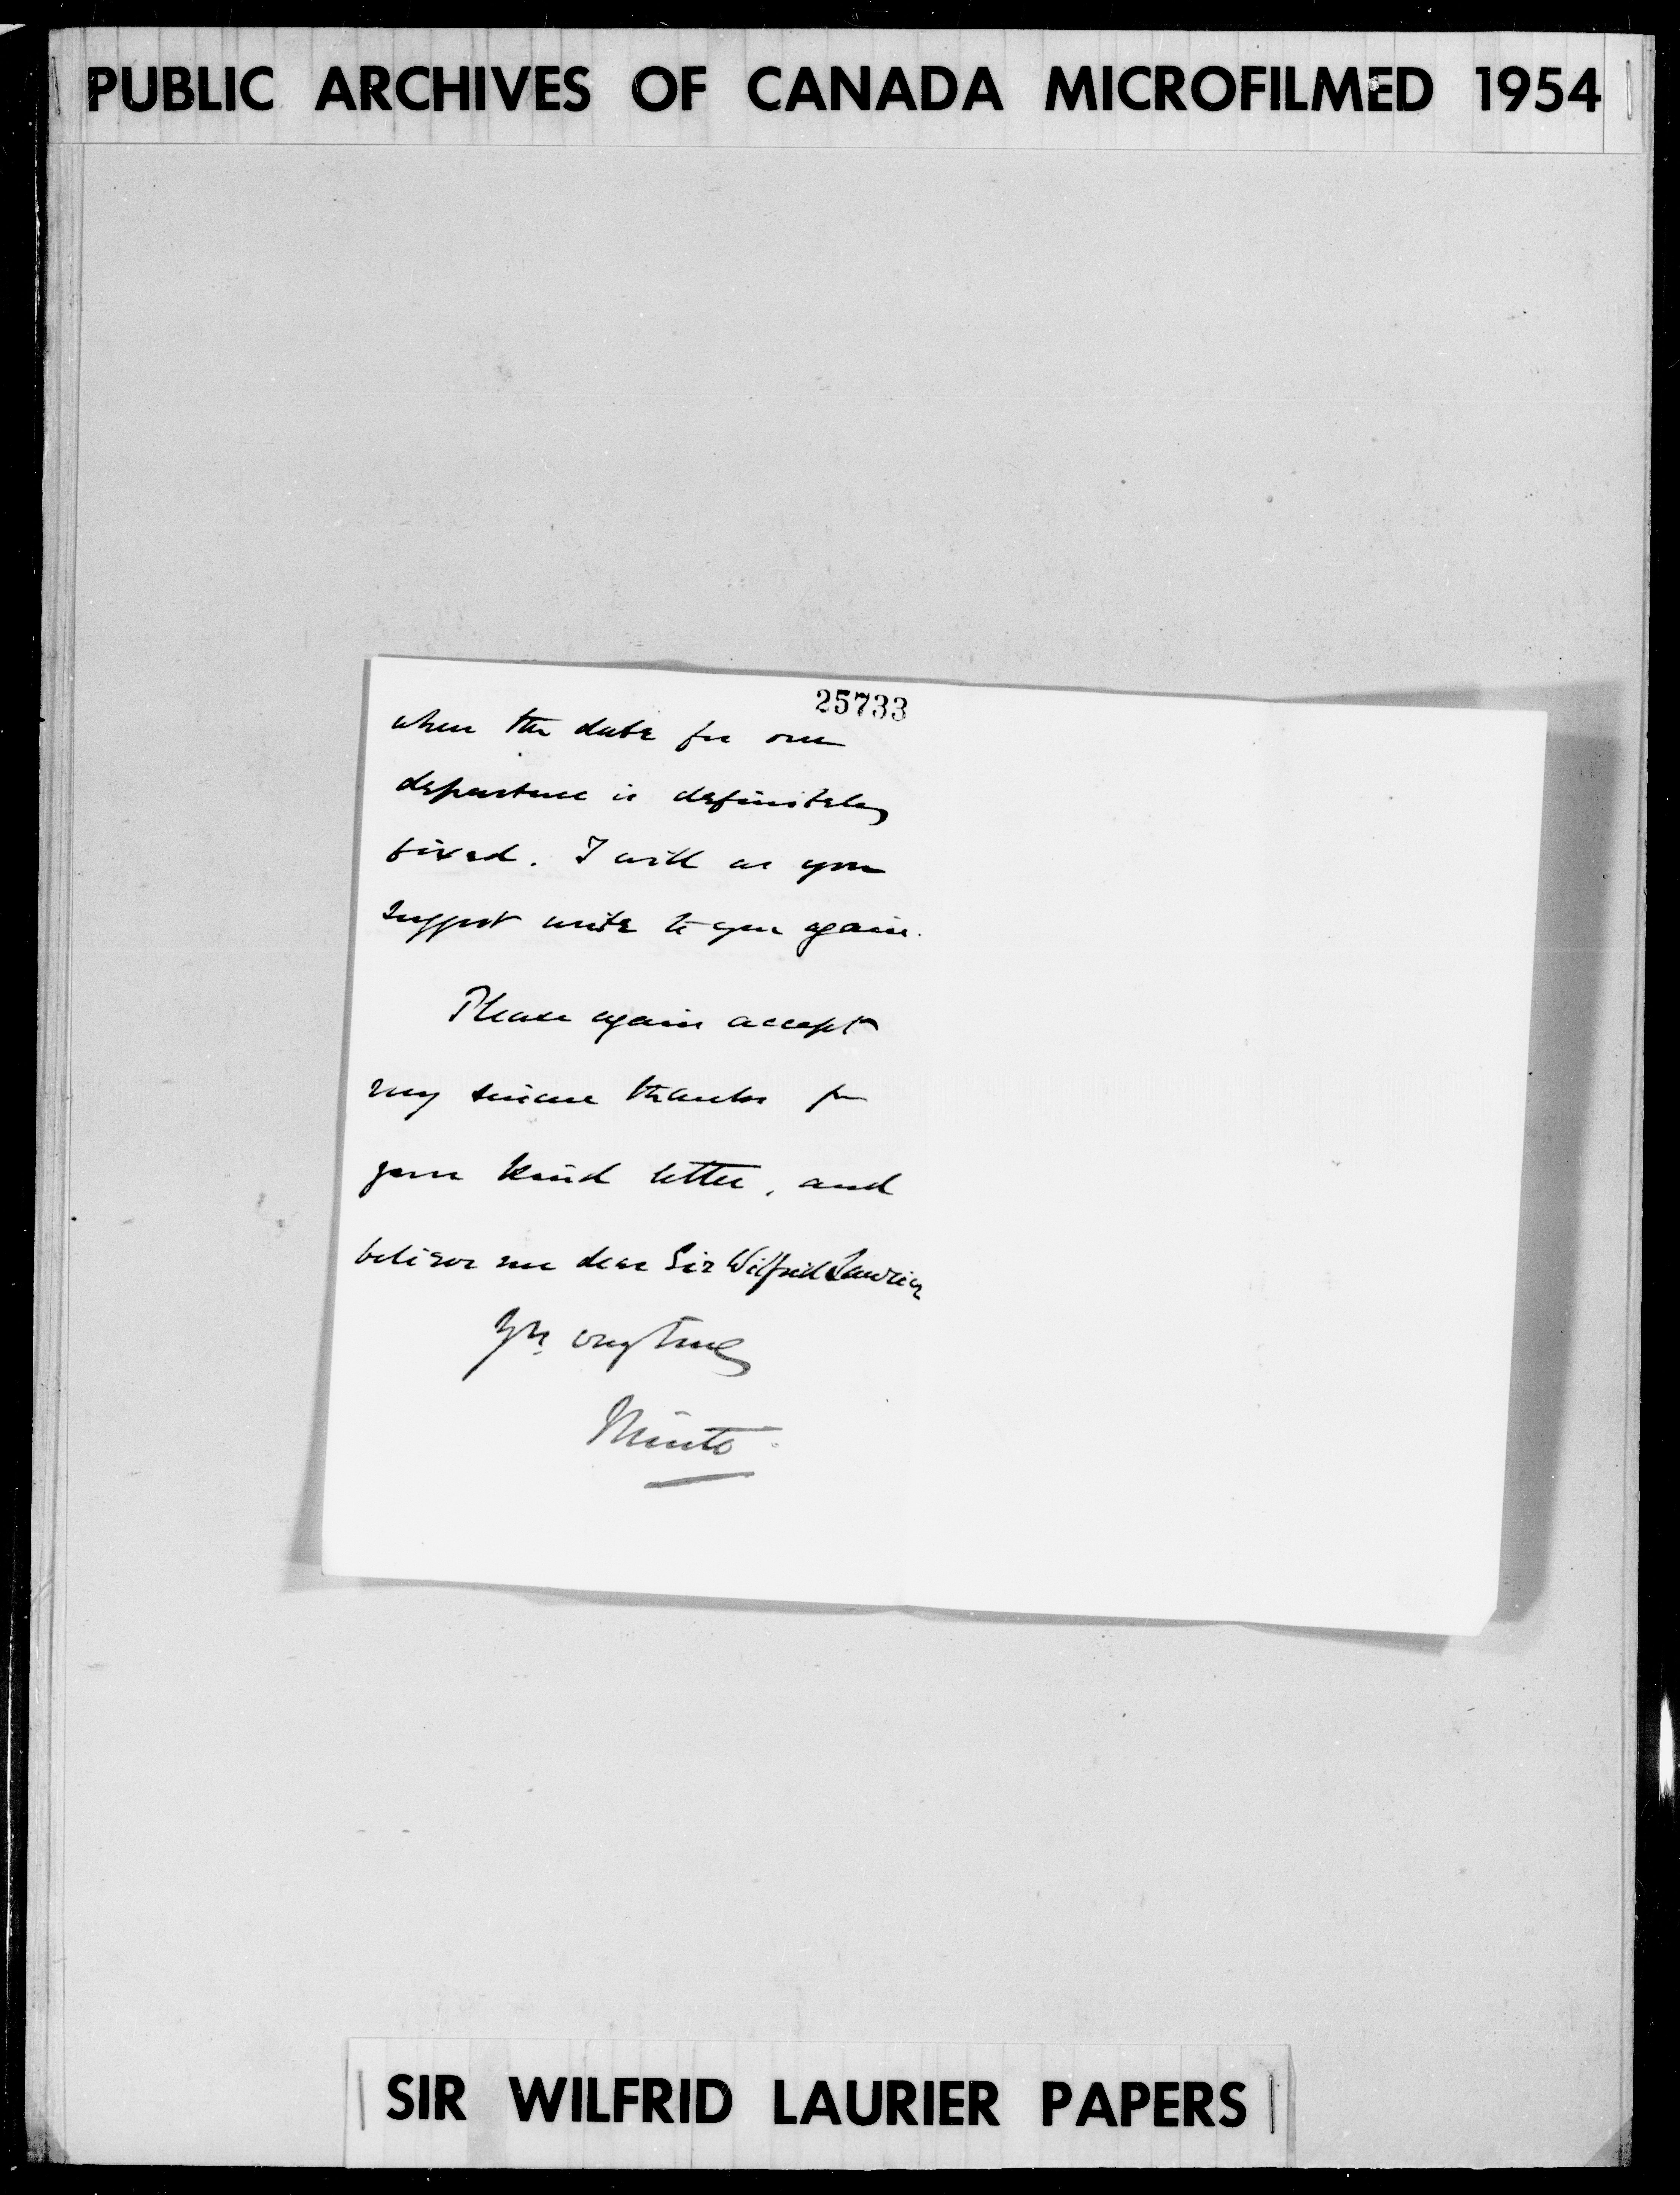 PUBLIC ARCHIVES OF CANADA MICROFILMED 1954
25733
when the date for our
departure is definitely
fixed. I will as you
suggest write to you again.
Please again accept
my sincere thanks for
your kind letter, and
believe me dear Sir Wilfrid Laurier
Yrs. very truly
Minto
SIR WILFRID LAURIER PAPERS